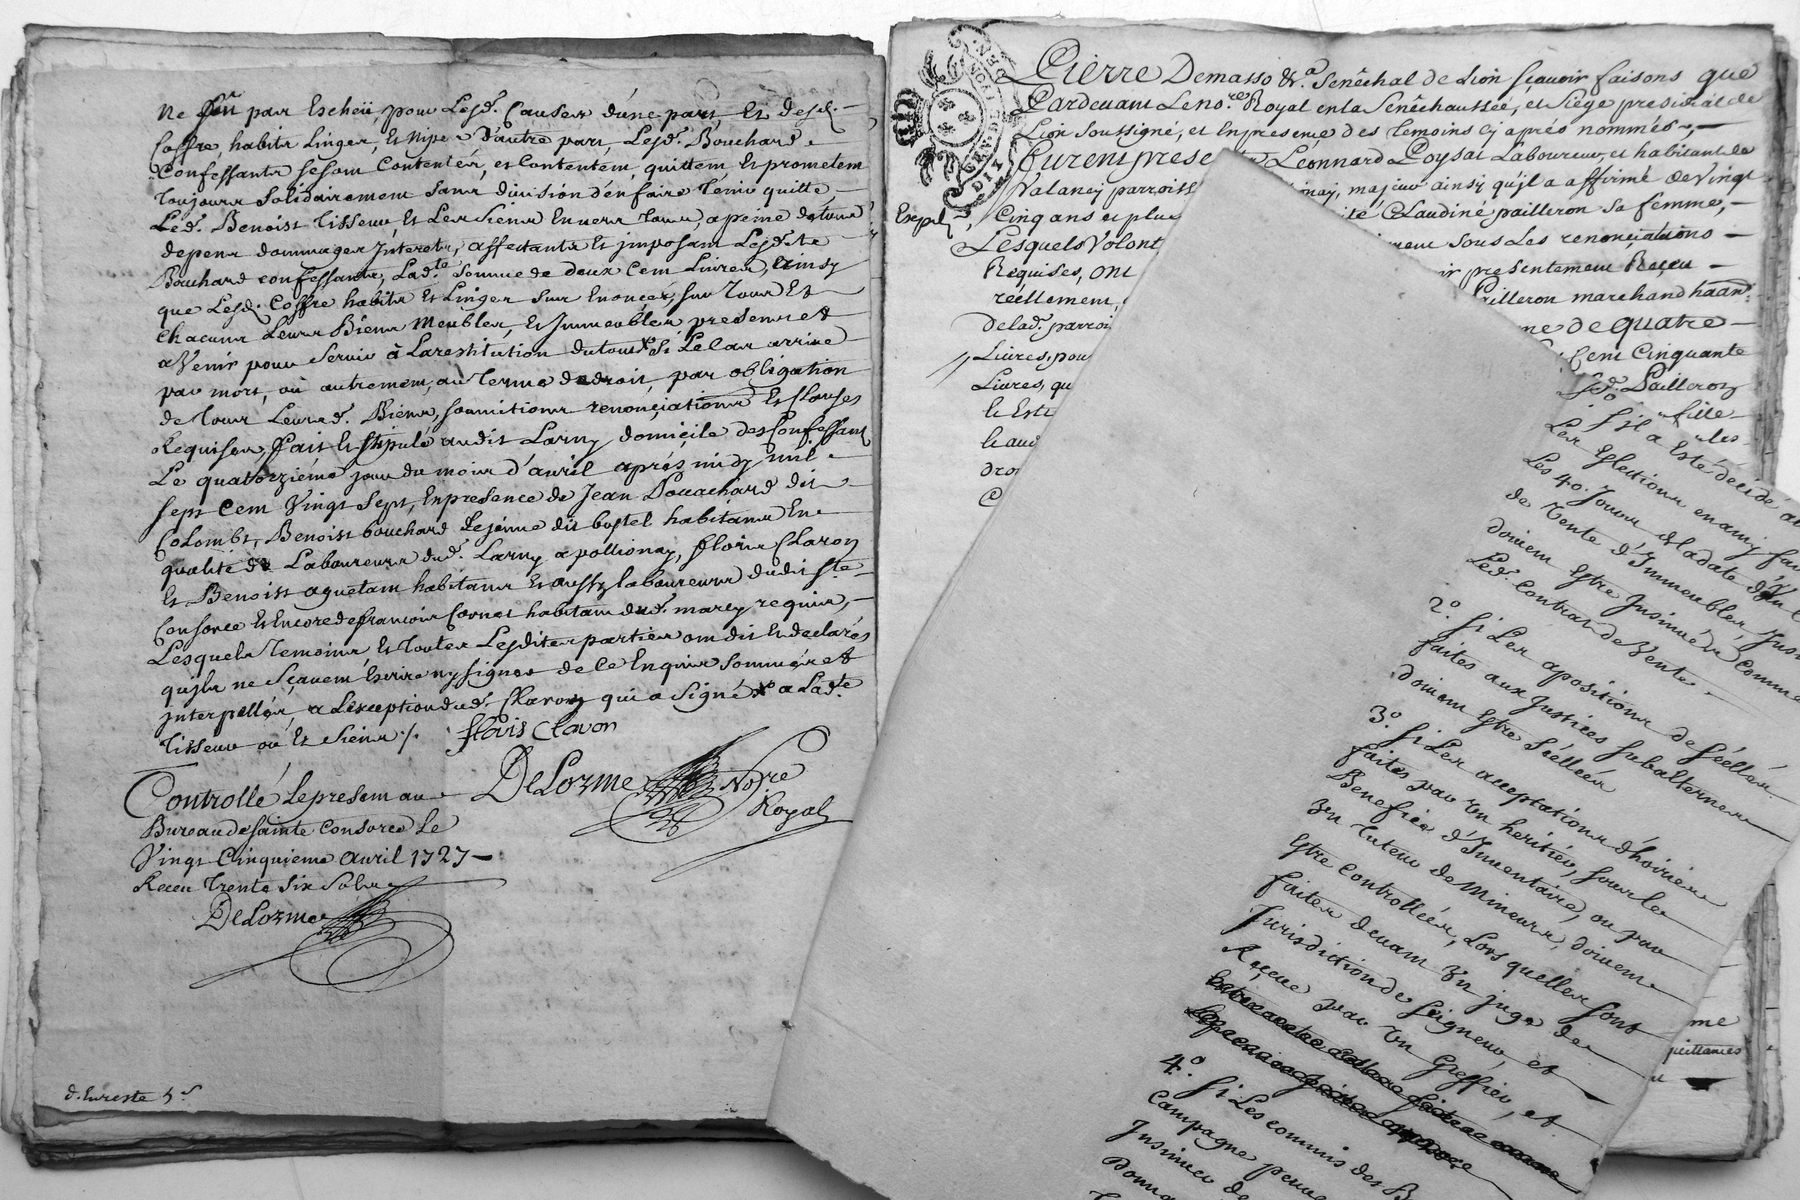 Ne par Escheü pour Lesd. Causes d'une part Et desd.
Coffre habits Linges, Et Nipes D'autre part, Lesd. Bouchard
Confessants se sont Contentés, et Contentent, quittent Et prometent
Toujours Solidairement sans division d'en faire Tenir quitte
Led. Benoist Tisseur, Et Les siens Envers Tous, a peine de tous
depens dommages Interets, affectants Et jmposant Lesdts
Bouchard confessants, Ladte somme de deux Cent Livres, Ainsy
que Lesd. Coffre habits Et Linges sur Enoncés, sur Tous Et
Chacuns Leurs Biens Meubles Et Immeubles presens et
a Venir pour servir à La restitution du tout si Le Cas arrive
par mort, ou autrement, au Terme de droit, par obligation
de Tous Leursd. Biens, soumitions renonçiations Et Clauses
Requises, fait Et stipulé audit Larny domiçile des Confessants
Le quatorziéme jour du mois d'avril aprés midy mil
sept Cent Vingt sept, En presence de Jean Bouachard dit
Colombt, Benoist bouchard Lejeune dit bostel habitans En
qualité de Laboureurs dud. Larny a pollionay, floris Claron
Et Benoist aguetant habitans Et aussy laboureurs dudit Ste
Consorce Et Encore de francois Cornet habitant dud. marcy requis,
Lesquels Temoins Et Toutes Lesdites parties ont dit Et declarés
qu'ils ne Sçavent Ecrire ny signer de Ce Enquis Sommés et
jnterpellés, a L'exception dud. Claron qui a signé a Ladte
Tisseur ou Et siens /.
floris Claron
DeLorme Nore
Royal
Controllé Le present au
Bureau de sainte Consorce Le
Vingt Cinquieme avril 1727
Receu Trente Six Sols
DeLorme
d. Lureste
GEN. DE LYON
DIX DEN.
Pierre Demasso &a. Senêchal de Lion sçavoir faisons que
Pardevant Le Nore. Royal en la Senéchaussée, et Siége presidial de
Lion Soussigné, et En presence des Temoins cy aprés nommés,
furent prese Léonnard Poysat Laboureur, et habitant de
Valancy parroiss nay, majeur ainsy qu'jl a affirmé de vingt
Expd.
Cinq ans et plus ité Claudine pailleron sa femme,
Lesquels Volont ment sous Les renonçiations
Requises, ont ir presentement Reçeu
réellement, ailleron marchand
de lad. parroi me de quatre
Livres, pou Cent Cinquante
Livres, qu sd. Pailleron
Et Est fille
Les
dro
1o. S'il a Esté décidé
Les Eslections en amy fai
Les 40. Jours de la date d'un C
de Vente d'Immeubles, Jusn
doivent Estre Insinués Comme
Led. Contrat de Vente.
2o. Si Les apositions de séellés
faites aux Justices subalternes
doivent Estre Séellées
3o. Si Les acceptations d'hoiries
faites par Un heritier, sous Le
Benefice d'Inventaire, ou par
Un Tuteur de Mineurs, doivent
Estre Controllées, Lors quelles sont
faites devant Un juge de
Jurisdiction de Seigneur, et
Reçeue par Un Greffier, et
4o. Si Les Commis des B
Campagne peuve
Insinuer de
Donna
me
quittances